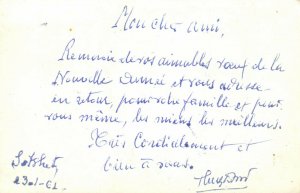 Mon cher ami,
Remercie de vos aimables vœux de la
Nouvelle Année et vous adresse
en retour, pour votre famille et pour
vous même, les miens les meilleurs.
Très Cordialement et
bien à vous.
23-1-62